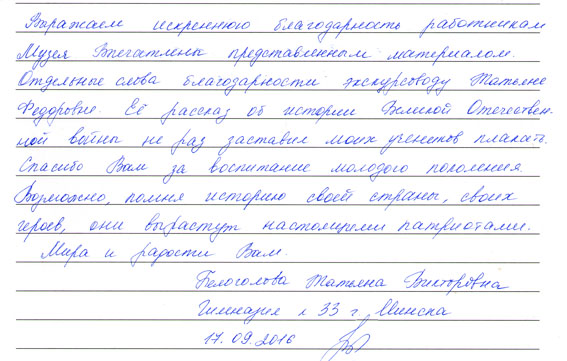 Выражаем искреннюю благодарность работникам
Музея Впечатлены представленным материалом.
Отдельные слова благодарности экскурсоводу Татьяне
Федоровне. Её рассказ об истории Великой Отечествен-
ной войны не раз заставил моих учеников плакать.
Спасибо Вам за воспитание молодого поколения.
Возможно, помня историю своей страны, своих
героев, они вырастут настоящими патриотами.
Мира и радости Вам.
Белоголова Татьяна Викторовна
Гимназия № 33 г. Минска
17.09.2016